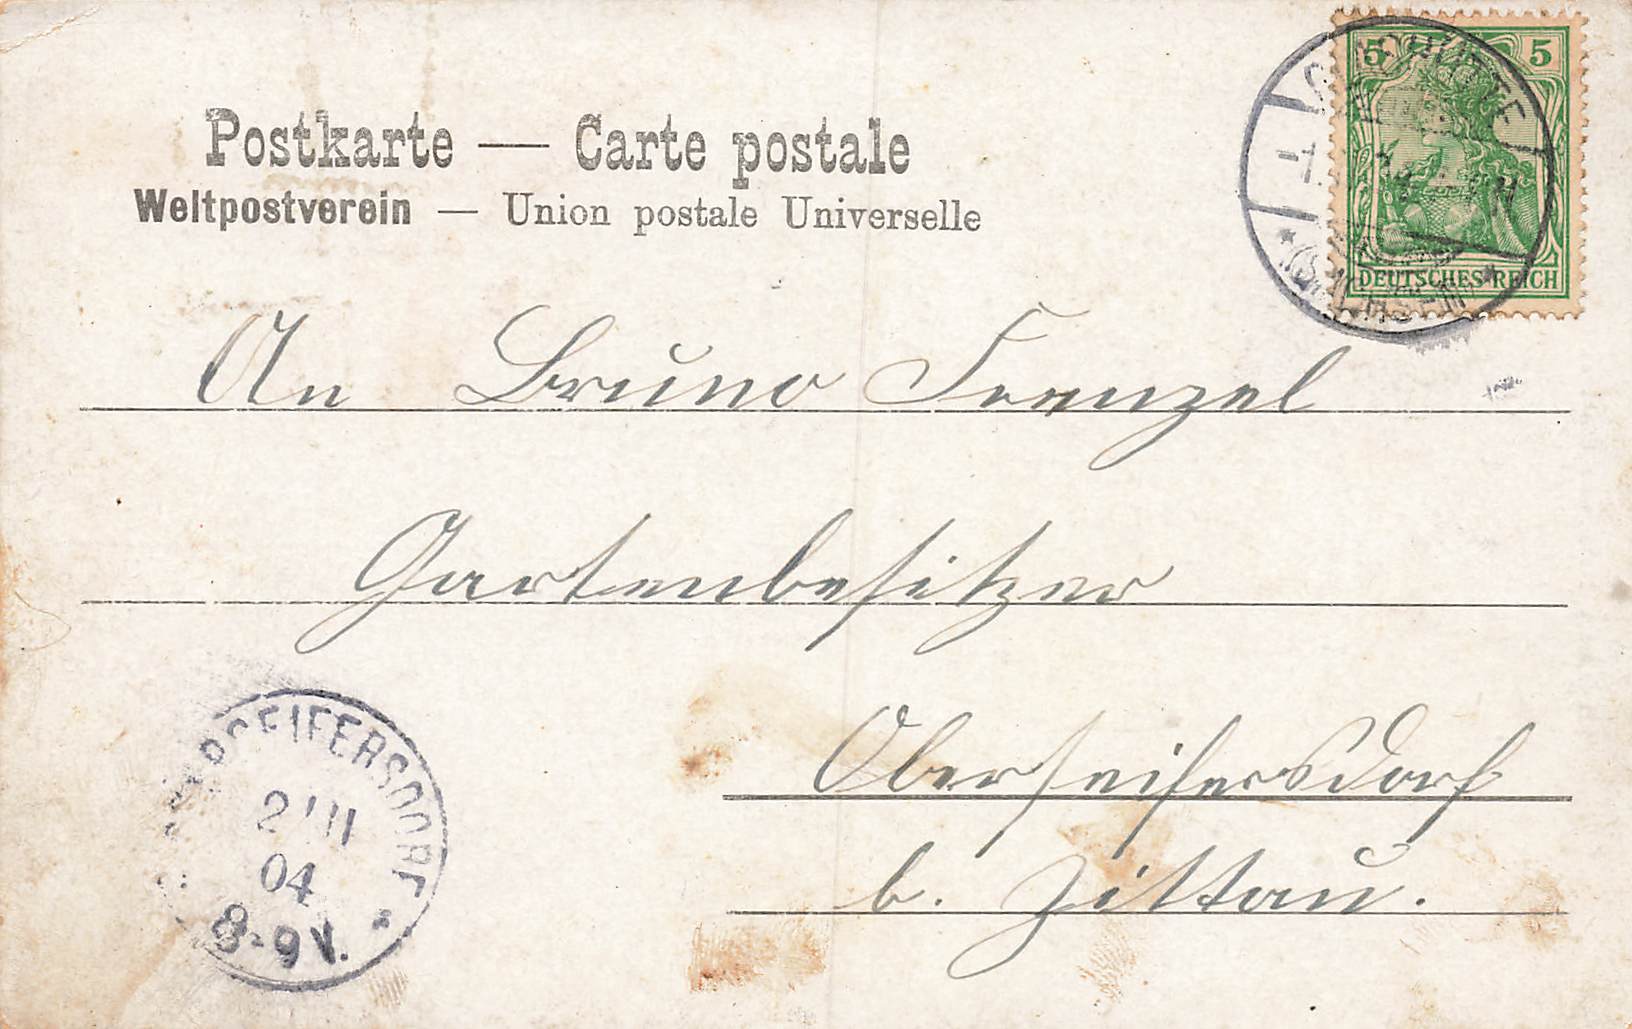 Postkarte — Carte postale
Weltpostverein — Union postale Universelle
5 5
DEUTSCHES REICH
An Bruno Frenzel
Gartenbesitzer
Oberseifersdorf
b. Zittau.
2 III
04
8-9V.